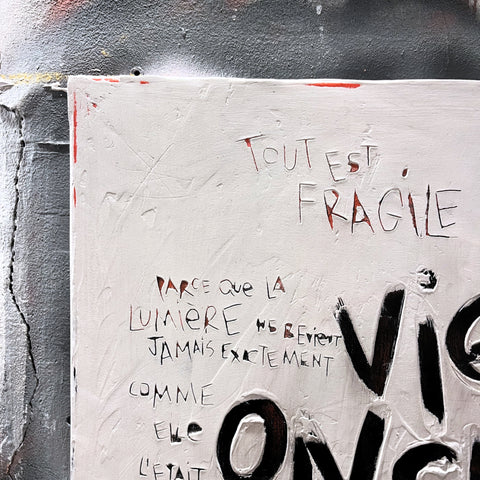 TOUT EST
FRAGILE
PARCE QUE LA
LUMIÈRE NE REVIENT
JAMAIS EXACTEMENT
COMME
ELLE
L'ÉTAIT